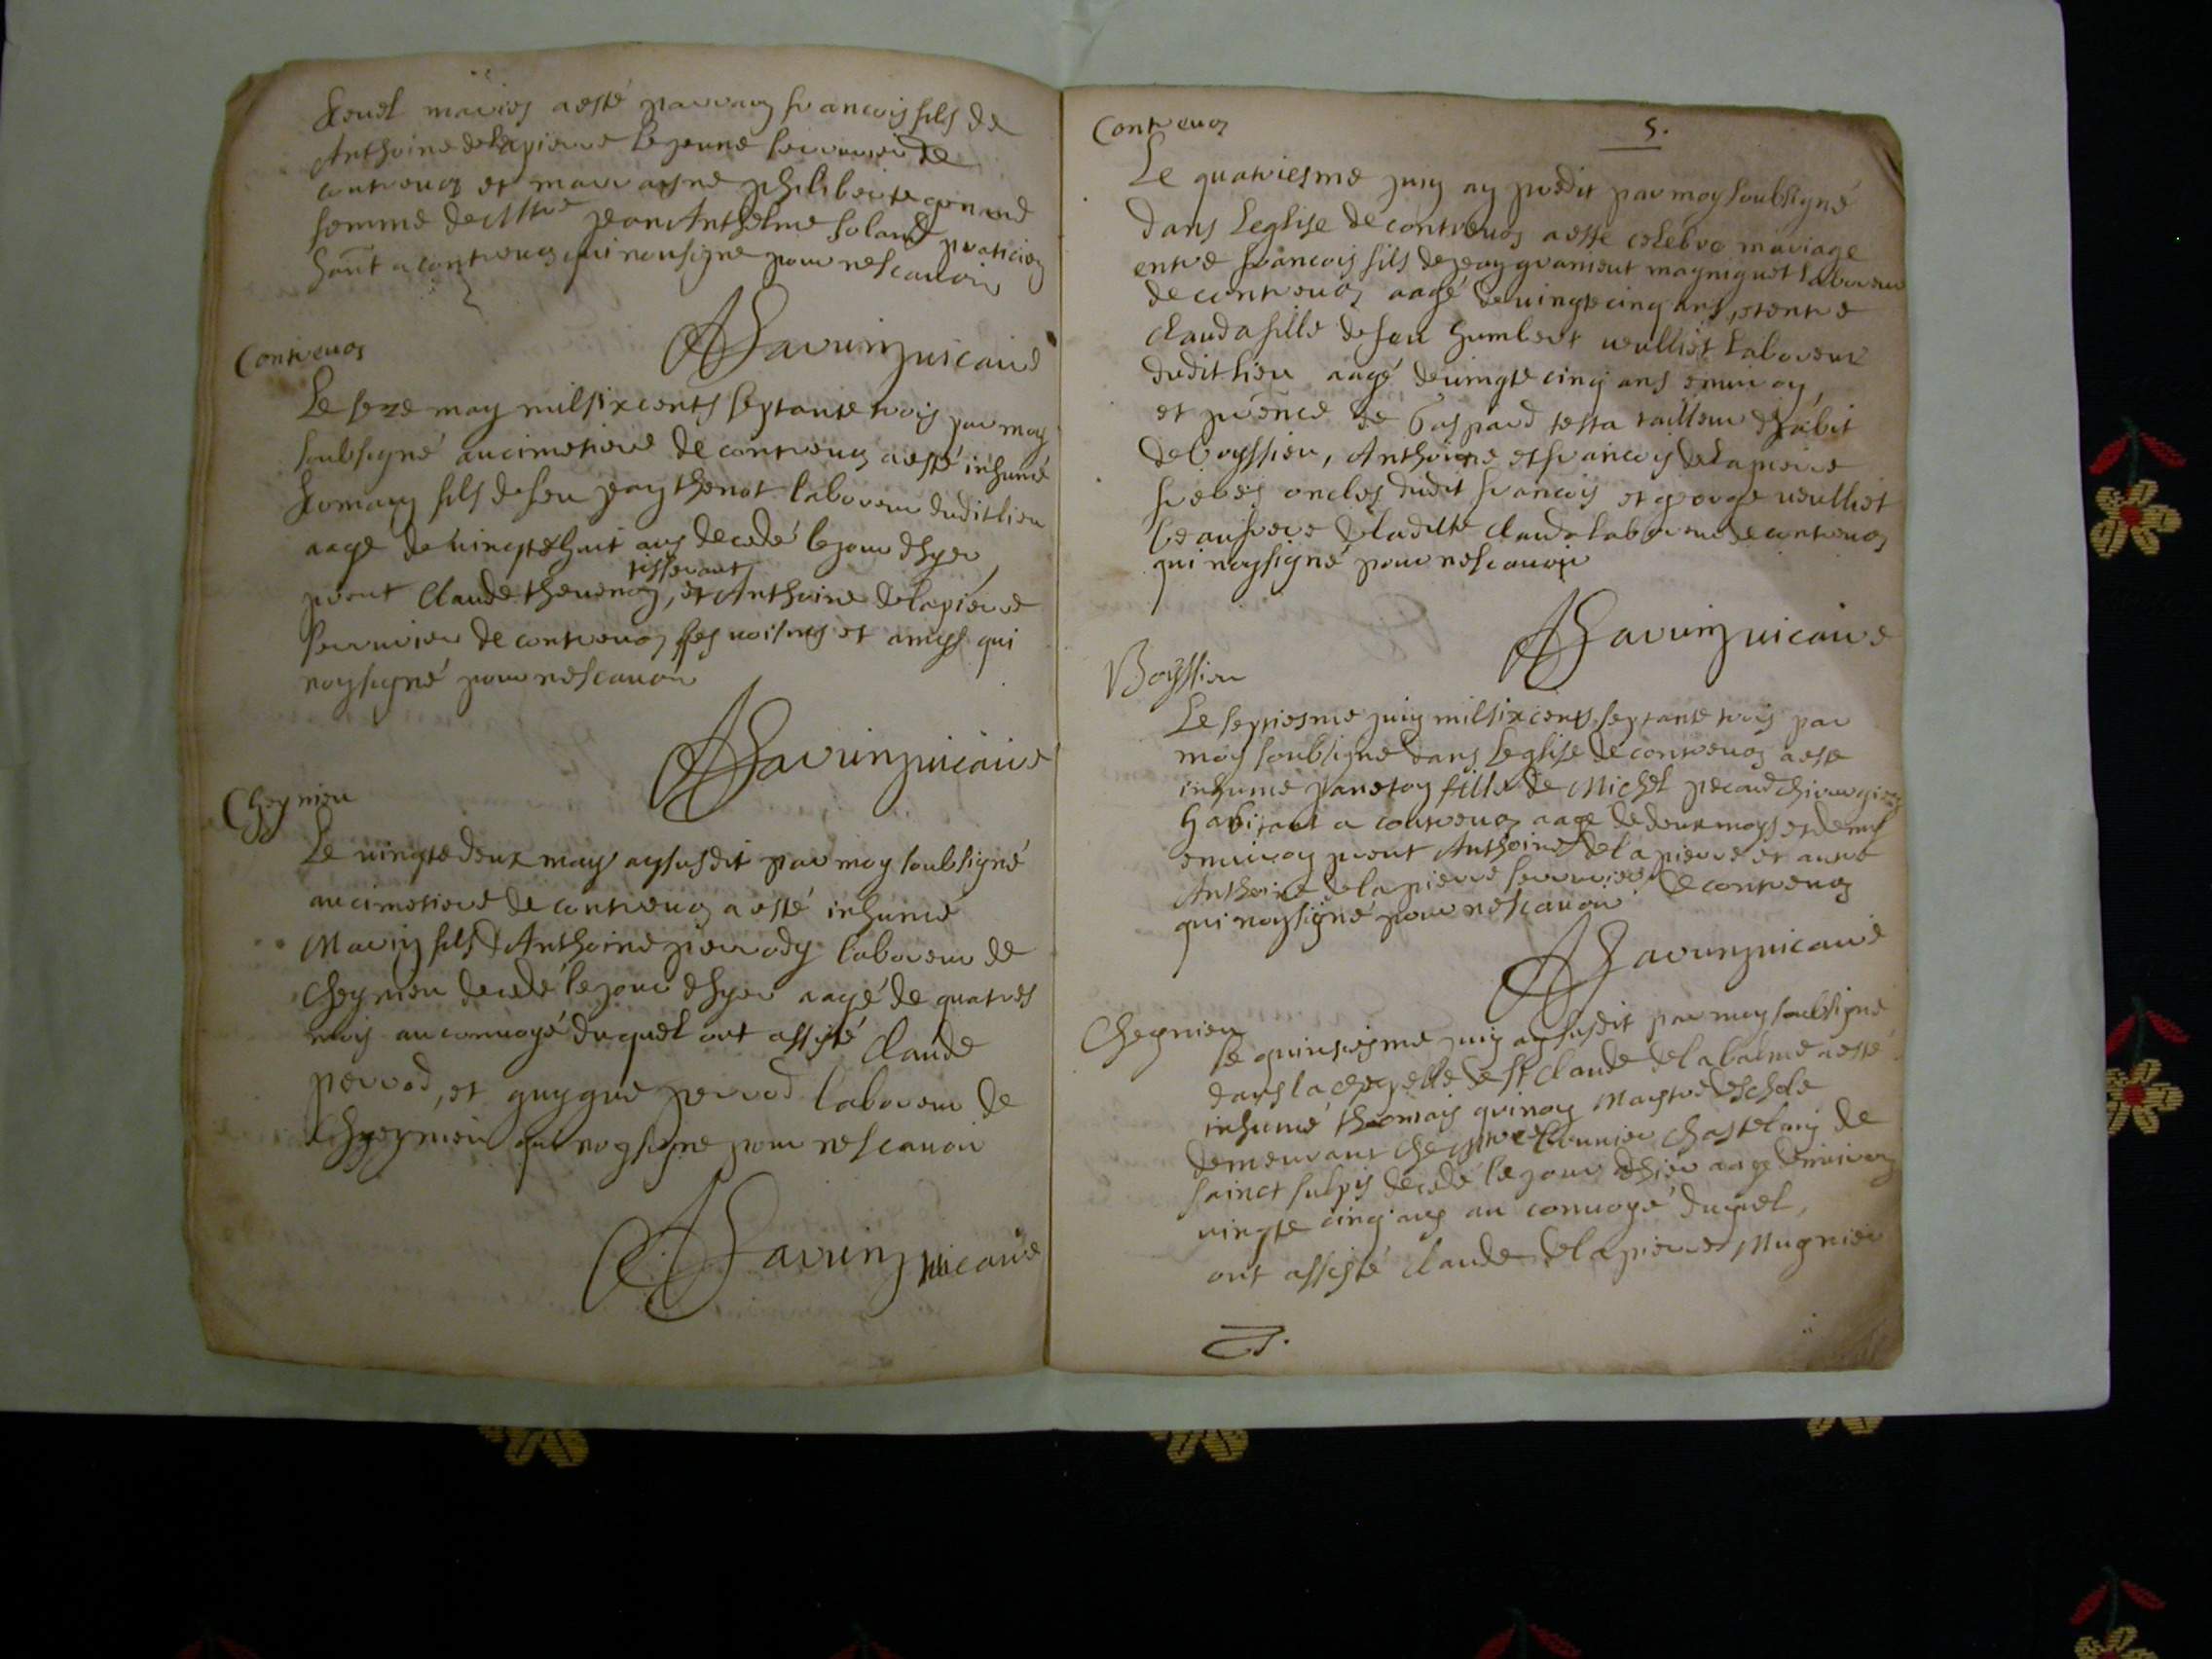 maries a esté parrain francois fils de
Anthoine delapierre le jeune serrurier de
contrevoz et marrayne philiberte
femme de Mtre Jean Anthelme praticien
hant a contrevoz qui non signe pour ne scavoir
Savarin vicaire
Contrevoz
Le seze may mil six cents septante trois par moy
soubsigné au cimetiere de contrevoz a esté inhumé
Romain fils de feu Jean thenot laboreur dudit lieu
aage de vingt et huit ans decedé le jour dhyer
pnt Claude thevenoz, tisserant et Anthoine delapierre
serrurier de contrevoz ses voisins et amys qui
nont signé pour ne scavoir
Savarin vicaire
Cheynieu
Le vingte deux may an susdit par moy soubsigné
au cimetiere de contrevoz a esté inhumé
Marin fils d Anthoine perrod laboreur de
Cheynieu decedé le jour dhyer aagé de quatres
mois au convoyé duquel ont assisté Claude
perrod, et guygue perrod laboreur de
Cheynieu qui non signe pour ne scavoir
Savarin vicaire
Contrevoz
5.
Le quatriesme juin an predit par moy soubsigné
dans leglise de contrevoz a esté celebre mariage
entre francois fils de Jean magniguet laboreur
de contrevoz aagé de vingte cinq ans, et entre
Clauda fille de feu humbert vulliet laboreur
dudit lieu aagé de vingte cinq ans environ,
et pnce de Gaspard testa tailleur dhabit
de boyssieu, Anthoine et francois delapierre
freres oncles dudit francois et george vulliet
beaufrere de ladite Clauda laboreur de contrevoz
qui non signé pour ne scavoir
Savarin vicaire
Boyssieu
Le septiesme juin mil six cents septante trois par
moy soubsigné dans leglise de contrevoz a esté
inhumé fille de Michel chirurgien
habitant a contrevoz aage de deux moys et demy
environ pnt Anthoine delapierre et autre
Anthoine delapierre serruriers de contrevoz
qui non signé pour ne scavoir
Savarin vicaire
Cheynieu
Le quinsiesme juin an susdit par moy soubsigné
dans la chapelle de St Claude de la balme a esté
inhumé thomas quinoz Maistre deschole
demeurant che Mtre chastelain de
sainct sulpis decedé le jour dhier aage denviron
vingte cinq ans au convoyé duquel,
ont assisté claude delapierre Mugnier